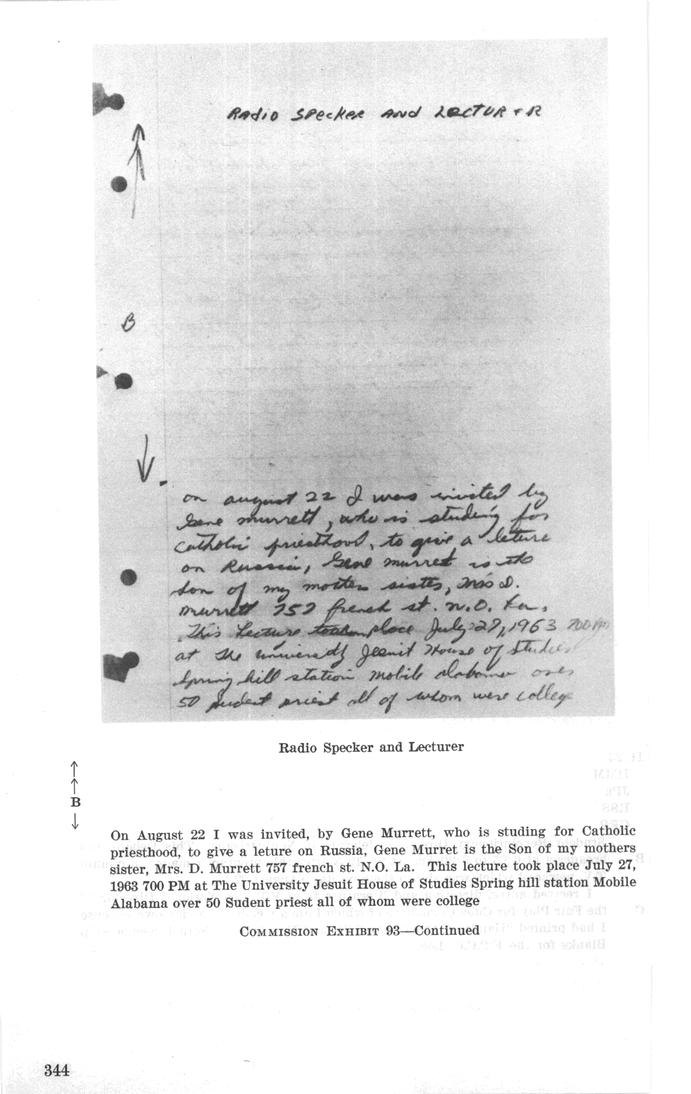 RADIO SPECKER AND LECTURER
B
on august 22 I was invited by
Gene murrett, who is studing for
Catholic priesthood, to give a leture
on Russia, Gene murret is the
Son of my mothers sister, Mrs D.
murrett 757 french st. N.O. La.
This Lecture took place July 27, 1963 700 PM
at The University Jesuit House of Studies
Spring hill station mobile alabama over
50 sudent priest all of whom were college
Radio Specker and Lecturer
↑
↑
B
↓
On August 22 I was invited, by Gene Murrett, who is studing for Catholic
priesthood, to give a leture on Russia, Gene Murret is the Son of my mothers
sister, Mrs. D. Murrett 757 french st. N.O. La. This lecture took place July 27,
1963 700 PM at The University Jesuit House of Studies Spring hill station Mobile
Alabama over 50 Sudent priest all of whom were college
COMMISSION EXHIBIT 93—Continued
344